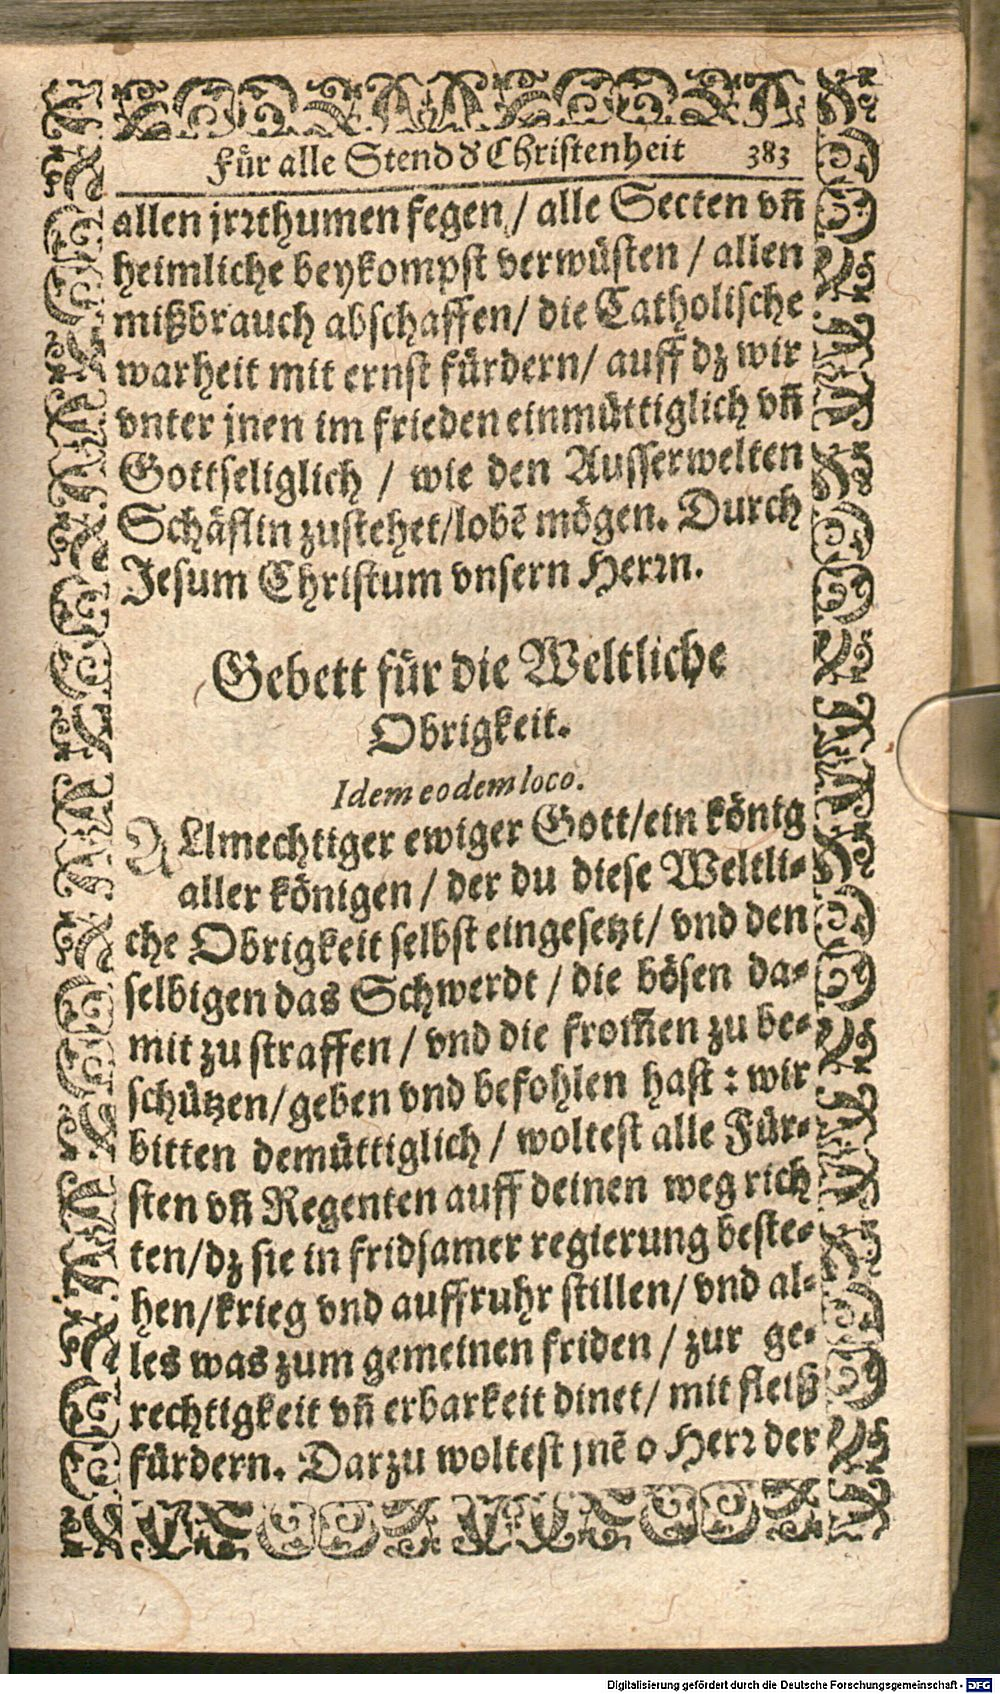 Für alle Stend d' Christenheit 383
allen jrꝛthumen fegen / alle Secten vñ
heimliche beykompst verwüsten / allen
mißbrauch abschaffen / die Catholische
warheit mit ernst fürdern / auff dz wir
vnter jnen im frieden einmüttiglich vñ
Gottseliglich / wie den Ausserwelten
Schäflin zustehet / lobẽ mögen. Durch
Jesum Christum vnsern Herꝛn.
Gebett für die Weltliche
Obrigkeit.
Idem eodem loco.
ALlmechtiger ewiger Gott / ein könig
aller königen / der du diese Weltli-
che Obrigkeit selbst eingesetzt / vnd den
selbigen das Schwerdt / die bösen da-
mit zu straffen / vnd die from̃en zu be-
schützen / geben vnd befohlen hast : wir
bitten demüttiglich / woltest alle Für-
sten vñ Regenten auff deinen weg rich
ten / dz sie in fridsamer regierung beste-
hen / krieg vnd auffruhr stillen / vnd al-
les was zum gemeinen friden / zur ge-
rechtigkeit vñ erbarkeit dinet / mit fleiß
fürdern. Darzu woltest jnẽ o Herꝛ der
Digitalisierung gefördert durch die Deutsche Forschungsgemeinschaft - DFG